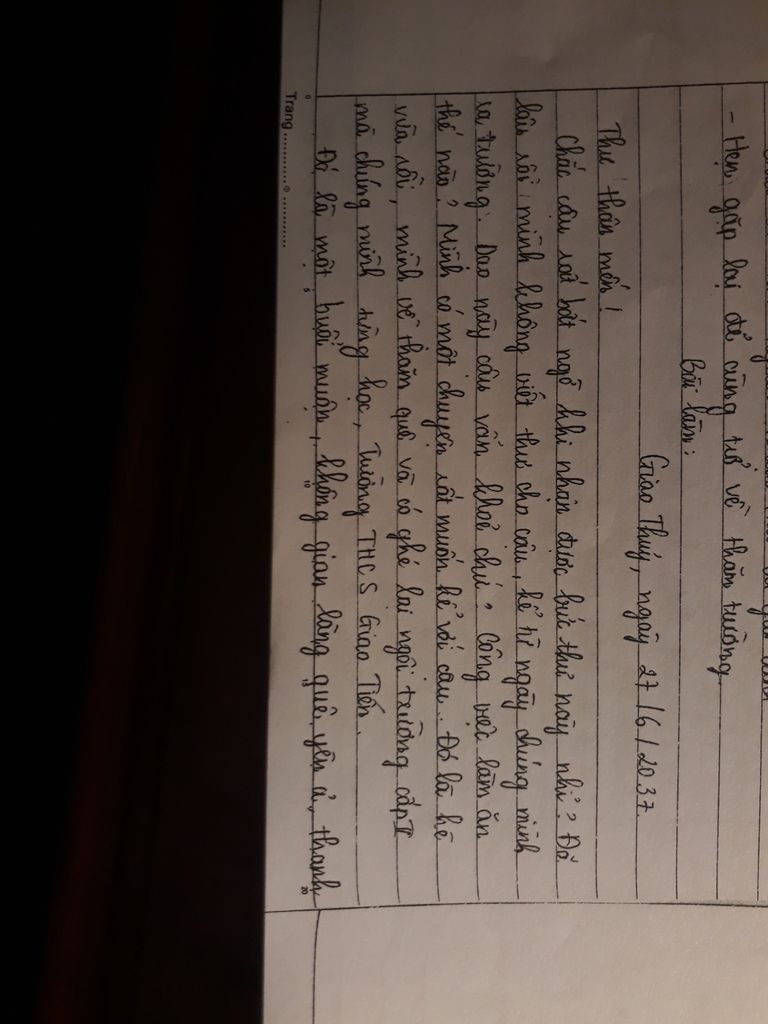 - Hẹn gặp lại để cùng trở về thăm trường.
Bài làm:
Giao Thuỷ, ngày 27/6/2037.
Thư thân mến!
Chắc cậu rất bất ngờ khi nhận được bức thư này nhỉ? Đã
lâu rồi mình không viết thư cho cậu, kể từ ngày chúng mình
ra trường. Dạo này cậu vẫn khoẻ chứ? Công việc làm ăn
thế nào? Mình có một chuyện rất muốn kể với cậu. Đó là hè
vừa rồi, mình về thăm quê và có ghé lại ngôi trường cấp II
mà chúng mình từng học, Trường THCS Giao Tiến.
Đó là một buổi muộn, không gian làng quê yên ả, thanh
Trang
0
5
10
15
20